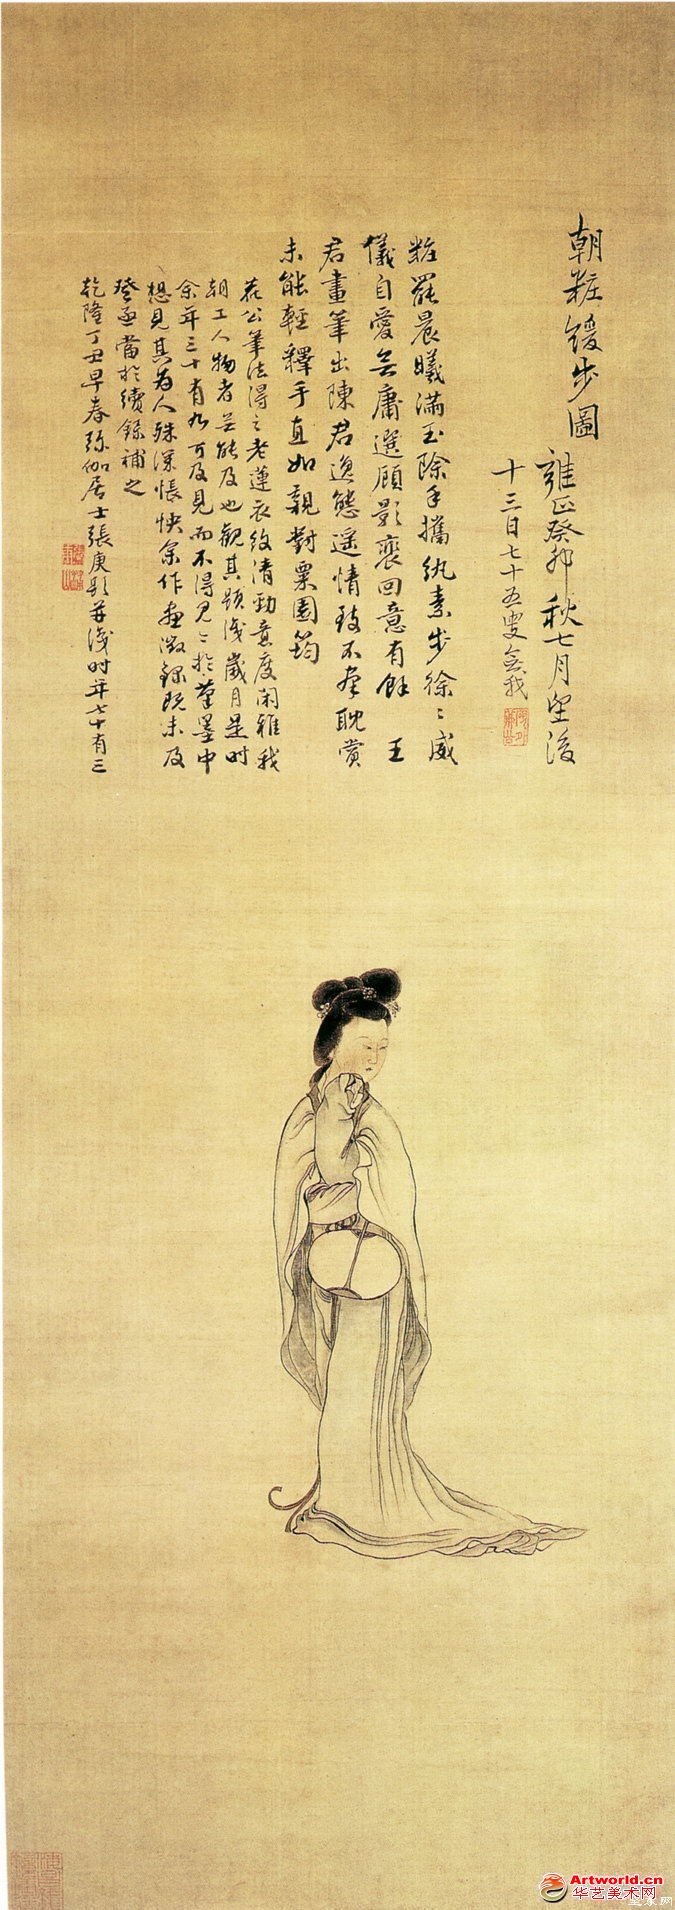 朝粧緩步圖
雍正癸卯秋七月望後
十三日七十五叟金我
粧罷晨曦滿玉除手攜紈素步徐〻威
儀自愛無庸選顧影裵回意有餘 王
君畫筆出陳君逸態遥情致不羣耽賞
未能輕釋手直如親對粟園筠
菘公筆法得之老蓮衣紋清勁意度閑雅我
朝工人物者無能及也觀其題淺歲月是時
余年三十有九可及見而不得見〻於筆墨中
想見其為人殊深悵快余作畫徵録既未及
登亟當於續録補之
乾隆丁丑早春弥伽居士張庚題并淺時年七十有三
Artworld.cn
华艺美术网